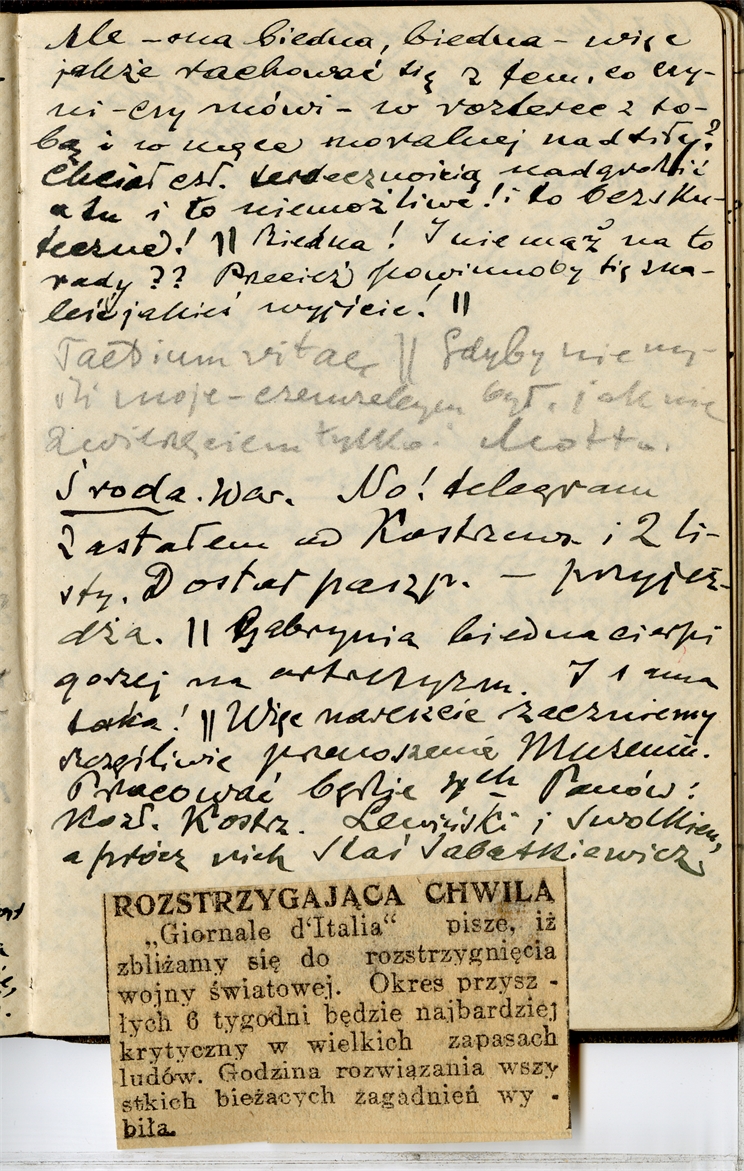 Ale – ona biedna, biedna – więc
jakże rachować się z tem, co czy-
ni – czy mówi – w rozterce z so-
bą i w męce moralnej nad siły?
Chciał czł. serdecznością nadgrodzić
a tu i to niemożliwe! i to bezsku-
teczne! || Biedna! I niemaż na to
rady?? Przecież powinnoby się zna-
leść jakieś wyjście! ||
Taedium vitae || Gdyby nie my-
śli moje – czemżebym był, jak nie
zwierzęciem tylko.
Środa. War. No! telegram
zastałem od Kostrzew. i 2 li-
sty. Dostał paszp. – przyjeż-
dża. || Gabrynia biedna cierpi
gorzej na artretyzm. I sama
taka! || Więc nareszcie zaczniemy
szczęśliwie przenoszenie Muzeum.
Pracować będzie Panów:
Kozł. Kostrz. Lewiński i
a prócz nich Staś Sabatkiewicz.
ROZSTRZYGAJĄCA CHWILA
„Giornale d'Italia“ pisze, iż
zbliżamy się do rozstrzygnięcia
wojny światowej. Okres przysz -
łych 6 tygodni będzie najbardziej
krytyczny w wielkich zapasach
ludów. Godzina rozwiązania wszy
stkich bieżących zagadnień wy -
biła.